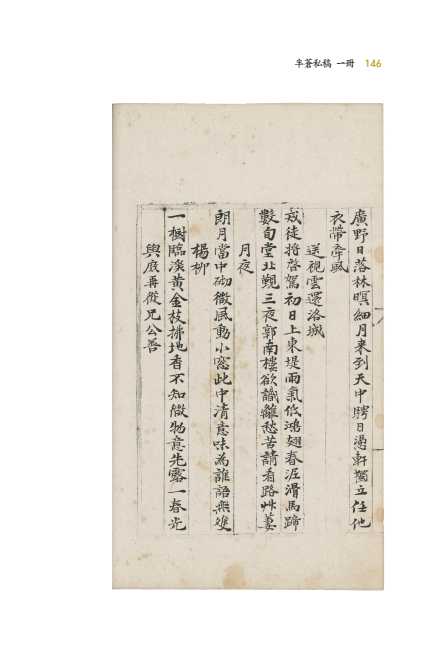 半蒼私稿 一冊 146
廣野日落林暝細月来到天中聘目憑軒獨立任他
衣帶牽風
送視雲還洛城
戒徒将啓駕初日上東堤雨氣低鴻翅春泥滑馬蹄
數旬堂北覲三夜郭南棲欲識離愁苦請看路艸萋
月夜
朗月當中砌微風動小窓此中清意味為誰語無雙
楊柳
一樹臨溪黃金枝拂地香不知微物意先露一春光
與庶再從兄公善